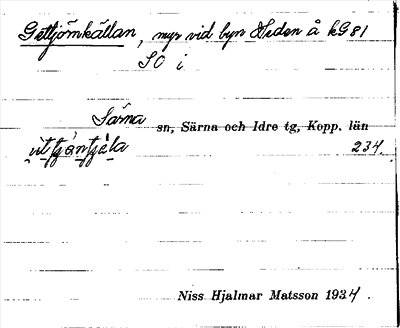 Getjömkällan, myr vid byn Heden å kG81
SO i
Särna sn, Särna och Idre tg, Kopp. län
234.
Niss Hjalmar Matsson 1934.